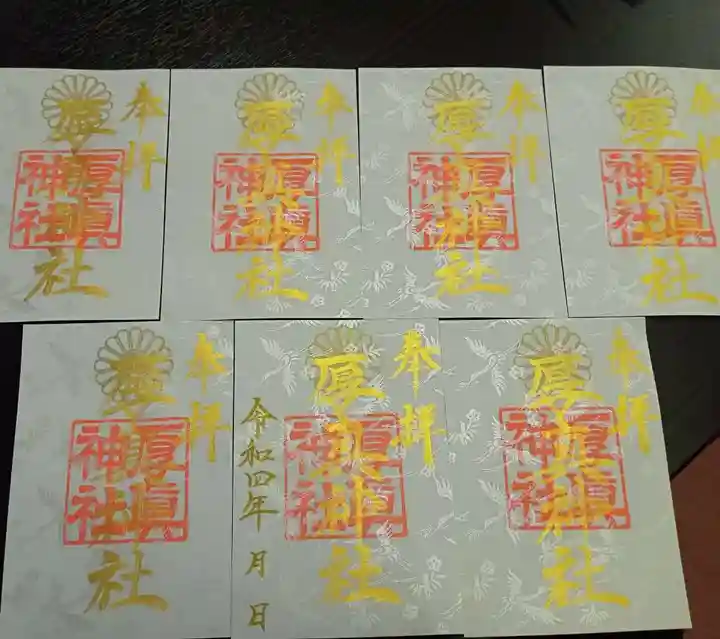 奉拝
厚真神社
厚眞
神社
奉拝
厚真神社
厚眞
神社
奉拝
厚真神社
厚眞
神社
奉拝
厚真神社
厚眞
神社
奉拝
厚真神社
厚眞
神社
奉拝
厚真神社
厚眞
神社
令和四年 月 日
奉拝
厚真神社
厚眞
神社